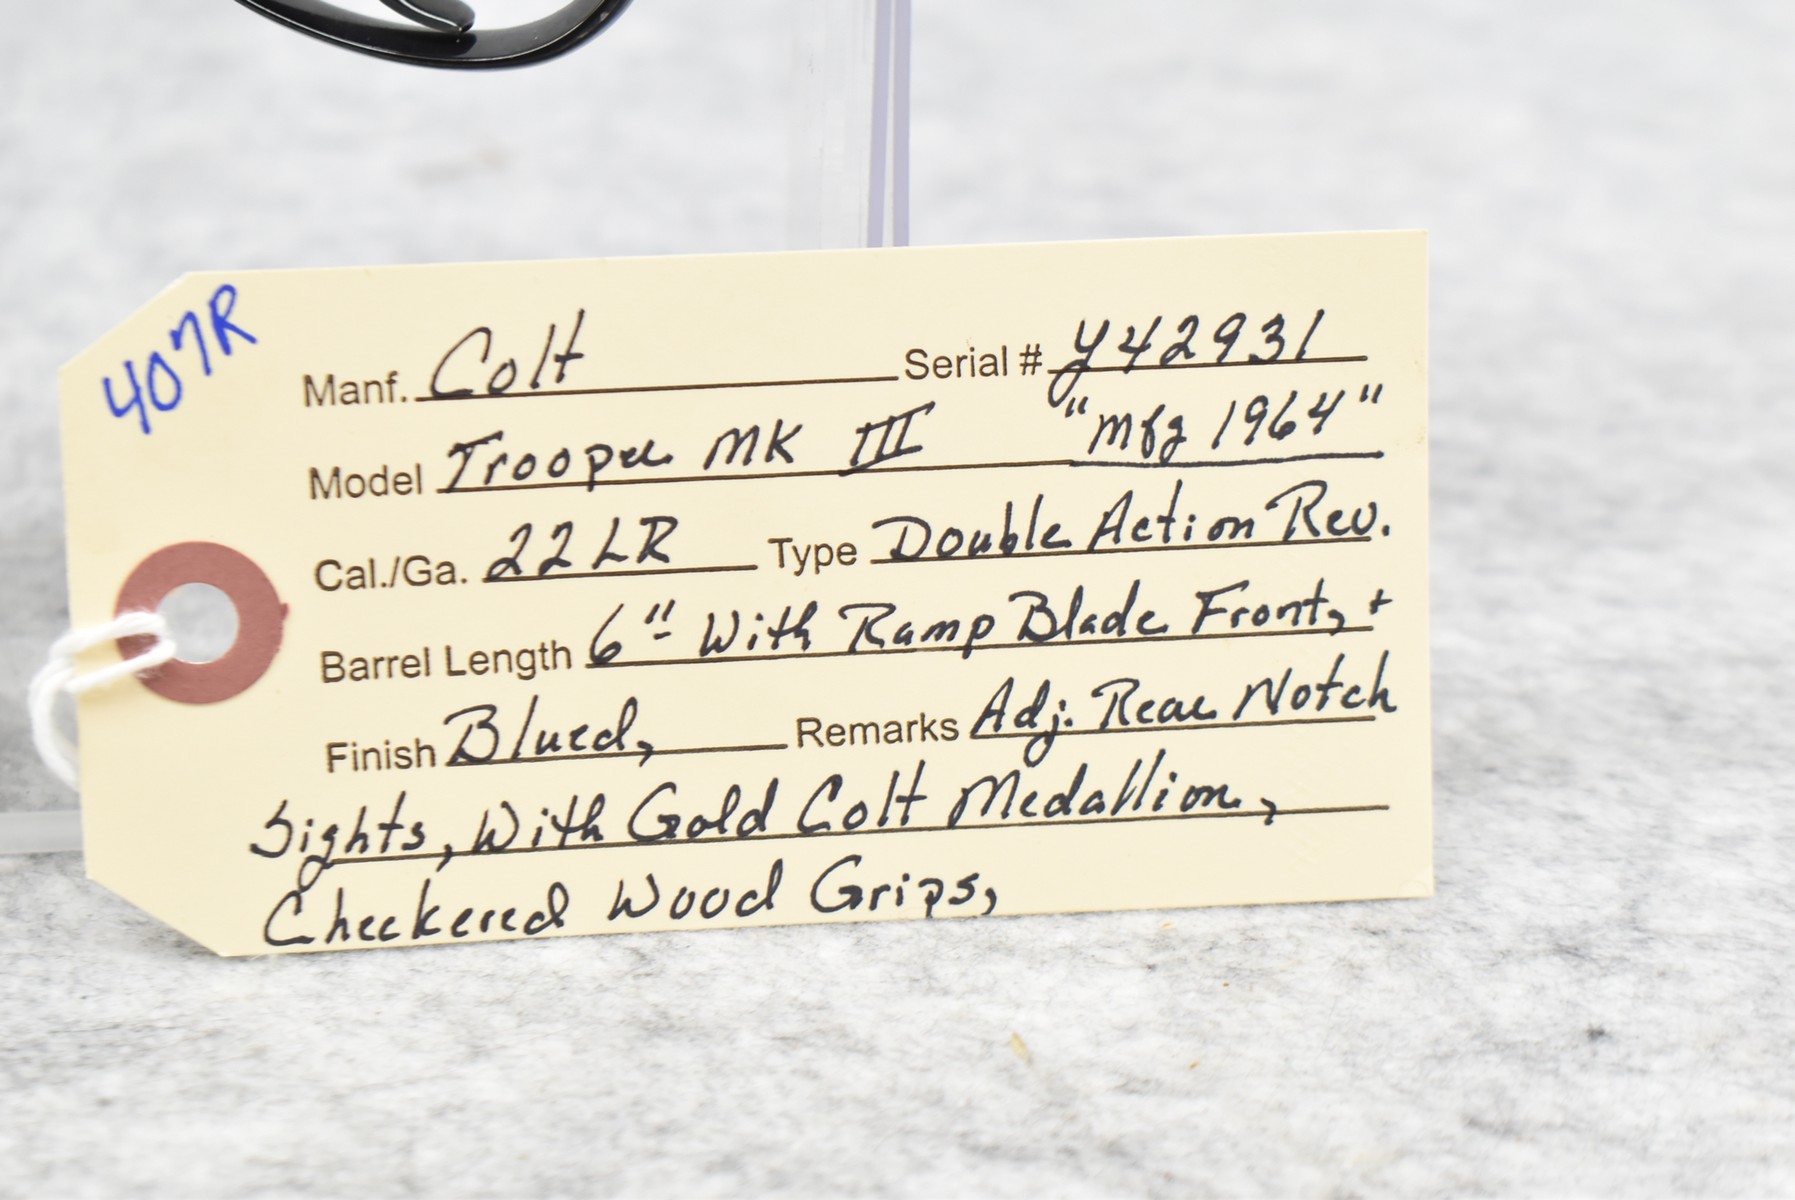 407R
Manf. Colt Serial # Y42931
Model Trooper MK III "Mfg 1964"
Cal./Ga. 22LR Type Double Action Rev.
Barrel Length 6" With Ramp Blade Front, +
Finish Blued, Remarks Adj. Rear Notch
Sights, With Gold Colt Medallion,
Checkered Wood Grips,